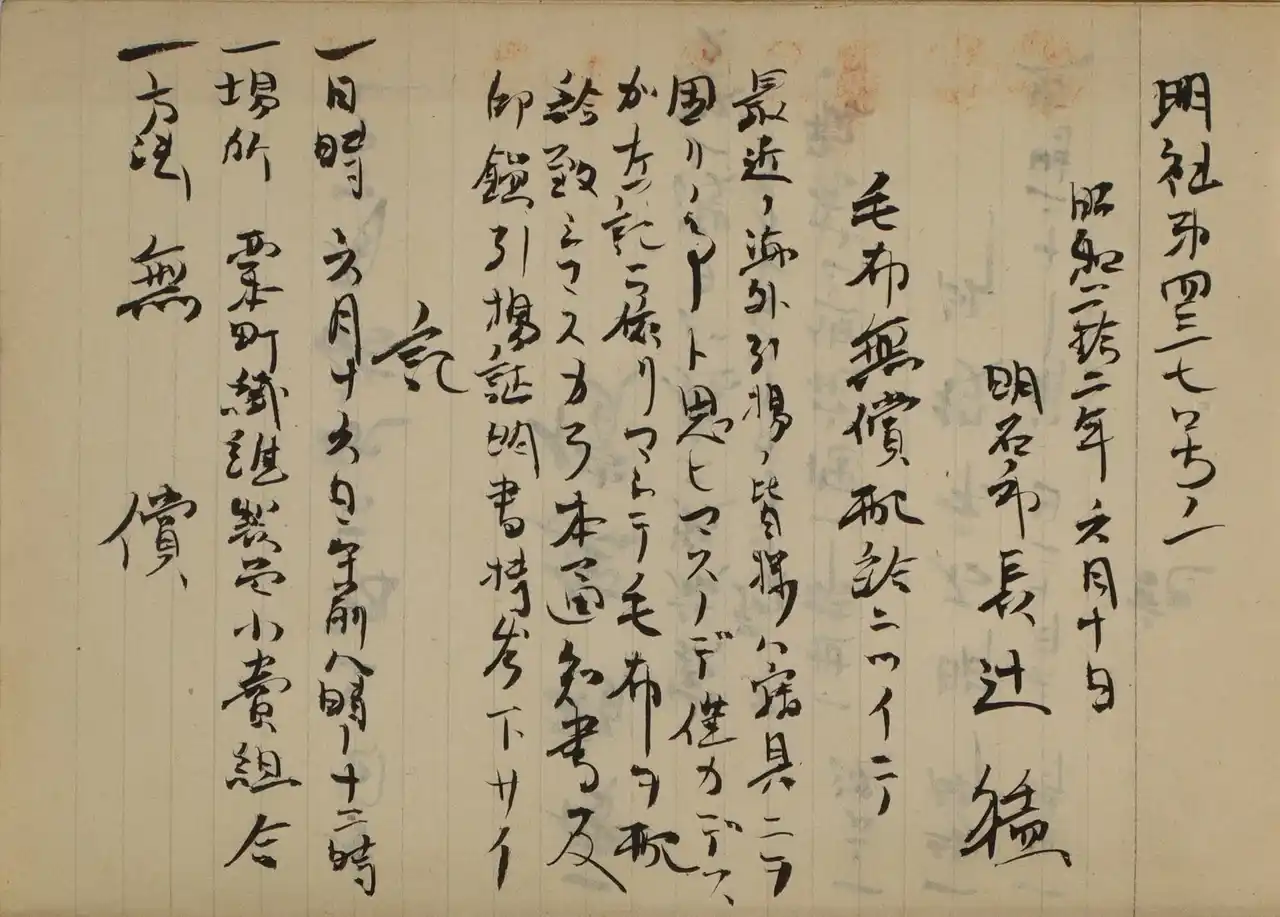 明社第四三七〇号ノ一
昭和二拾二年六月十日
明石市長 辻 猛
毛布無償配給ニツイテ
最近ノ海外引揚ノ皆様ハ寝具ニテ
困リノ事ト思ヒマスノデ僅カデス
ガ左記ニ依リマシテ毛布ヲ配
給致シマスカラ本通知書及
印鑑引揚証明書持参下サイ
記
一日時 六月十六日午前八時ー十二時
一場所 東本町繊維製品小賣組合
一方法 無 償